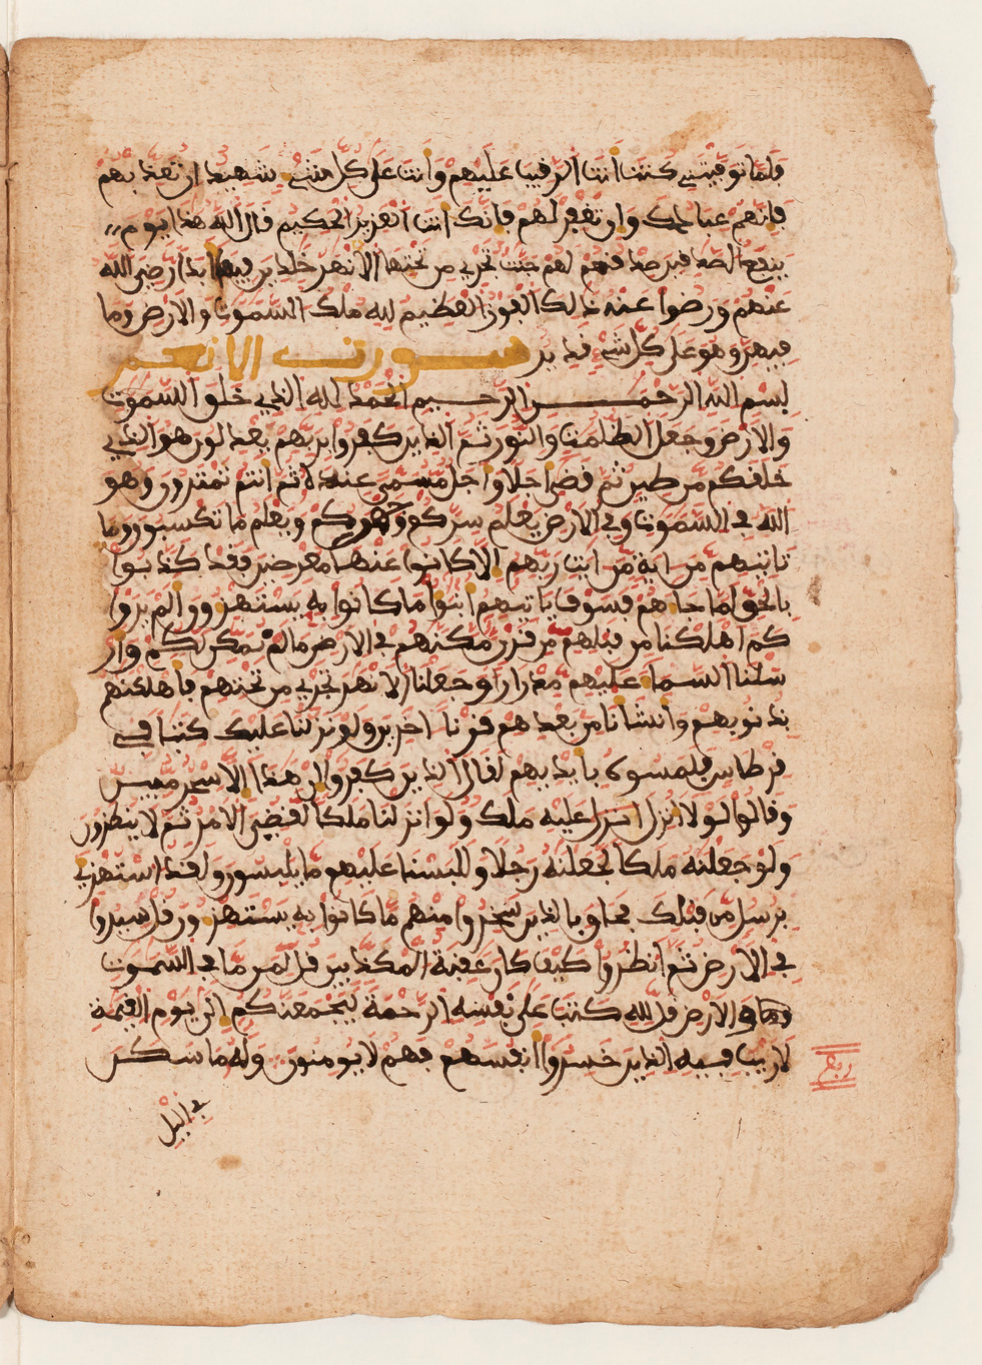 فلما توفيتني كنت انت الرقيب عليهم وانت على كل شيء شهيد ان تعذبهم
فانهم عبادك وان تغفر لهم فانك انت العزيز الحكيم قال الله هذا يوم
ينفع الصدقين صدقهم لهم جنت تجري من تحتها الانهر خلدين فيها ابدا رضي الله
عنهم ورضوا عنه ذلك الفوز العظيم لله ملك السموت والارض وما
فيهن وهو على كل شيء قدير سورت الانعم
بسم الله الرحمن الرحيم الحمد لله الذي خلق السموت
والارض وجعل الظلمت والنور ثم الذين كفروا بربهم يعدلون هو الذي
خلقكم من طين ثم قضى اجلا واجل مسمى عنده ثم انتم تمترون وهو
الله في السموت وفي الارض يعلم سركم وجهركم ويعلم ما تكسبون وما
تاتيهم من اية من ايت ربهم الا كانوا عنها معرضين فقد كذبوا
بالحق لما جاهم فسوف ياتيهم انبوا ما كانوا به يستهزون الم يروا
كم اهلكنا من قبلهم من قرن مكنهم في الارض ما لم نمكن لكم وار
سلنا السما عليهم مدرارا وجعلنا الانهر تجري من تحتهم فاهلكنهم
بذنوبهم وانشانا من بعدهم قرنا اخرين ولو نزلنا عليك كتبا في
قرطاس فلمسوه بايديهم لقال الذين كفروا ان هذا الا سحر مبين
وقالوا لولا انزل عليه ملك ولو انزلنا ملكا لقضي الامر ثم لا ينظرون
ولو جعلنه ملكا لجعلنه رجلا وللبسنا عليهم ما يلبسون ولقد استهزي
برسل من قبلك فحاق بالذين سخروا منهم ما كانوا به يستهزون قل سيروا
في الارض ثم انظروا كيف كان عقبة المكذبين قل لمن ما في السموت
والارض قل لله كتب على نفسه الرحمة ليجمعنكم الى يوم القيمة
لا ريب فيه الذين خسروا انفسهم فهم لا يومنون وله ما سكن
في اليل
ربع